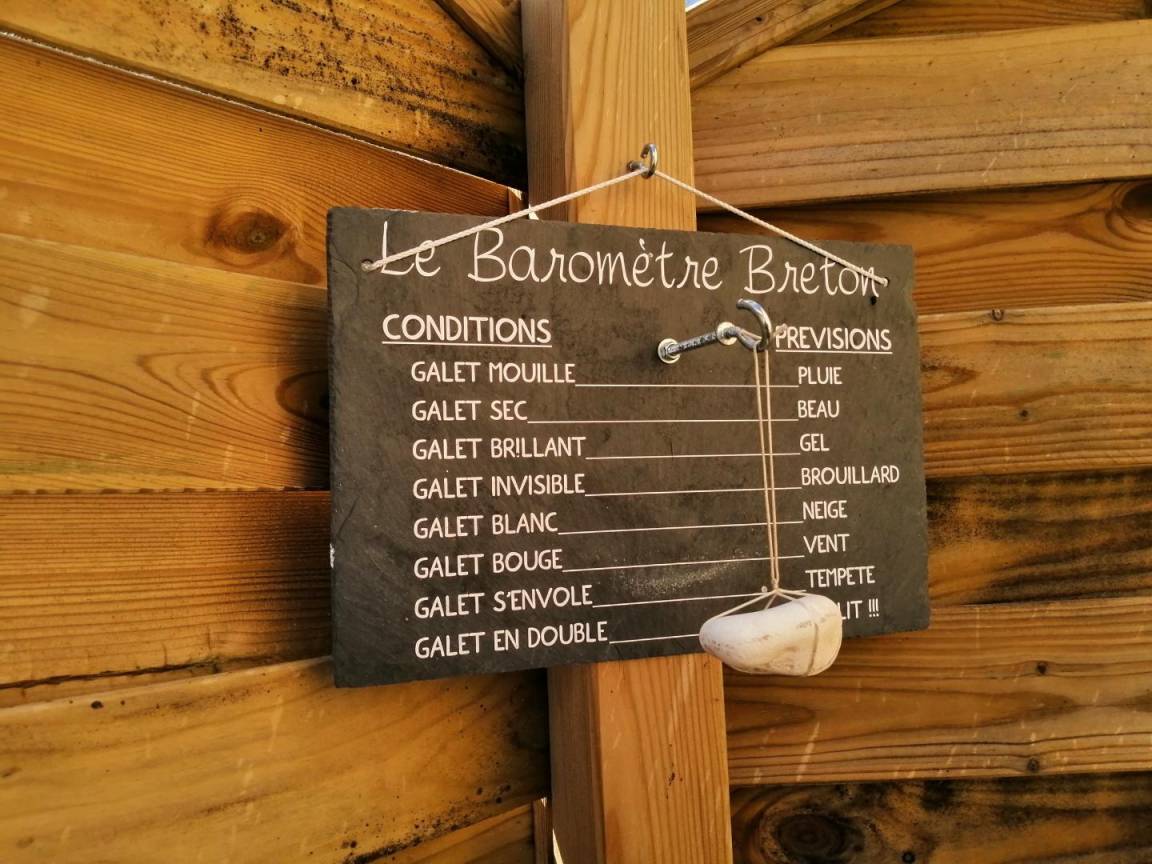 Le Baromètre Breton
CONDITIONS PREVISIONS
GALET MOUILLE PLUIE
GALET SEC BEAU
GALET BRILLANT GEL
GALET INVISIBLE BROUILLARD
GALET BLANC NEIGE
GALET BOUGE VENT
GALET S'ENVOLE TEMPETE
GALET EN DOUBLE !!!